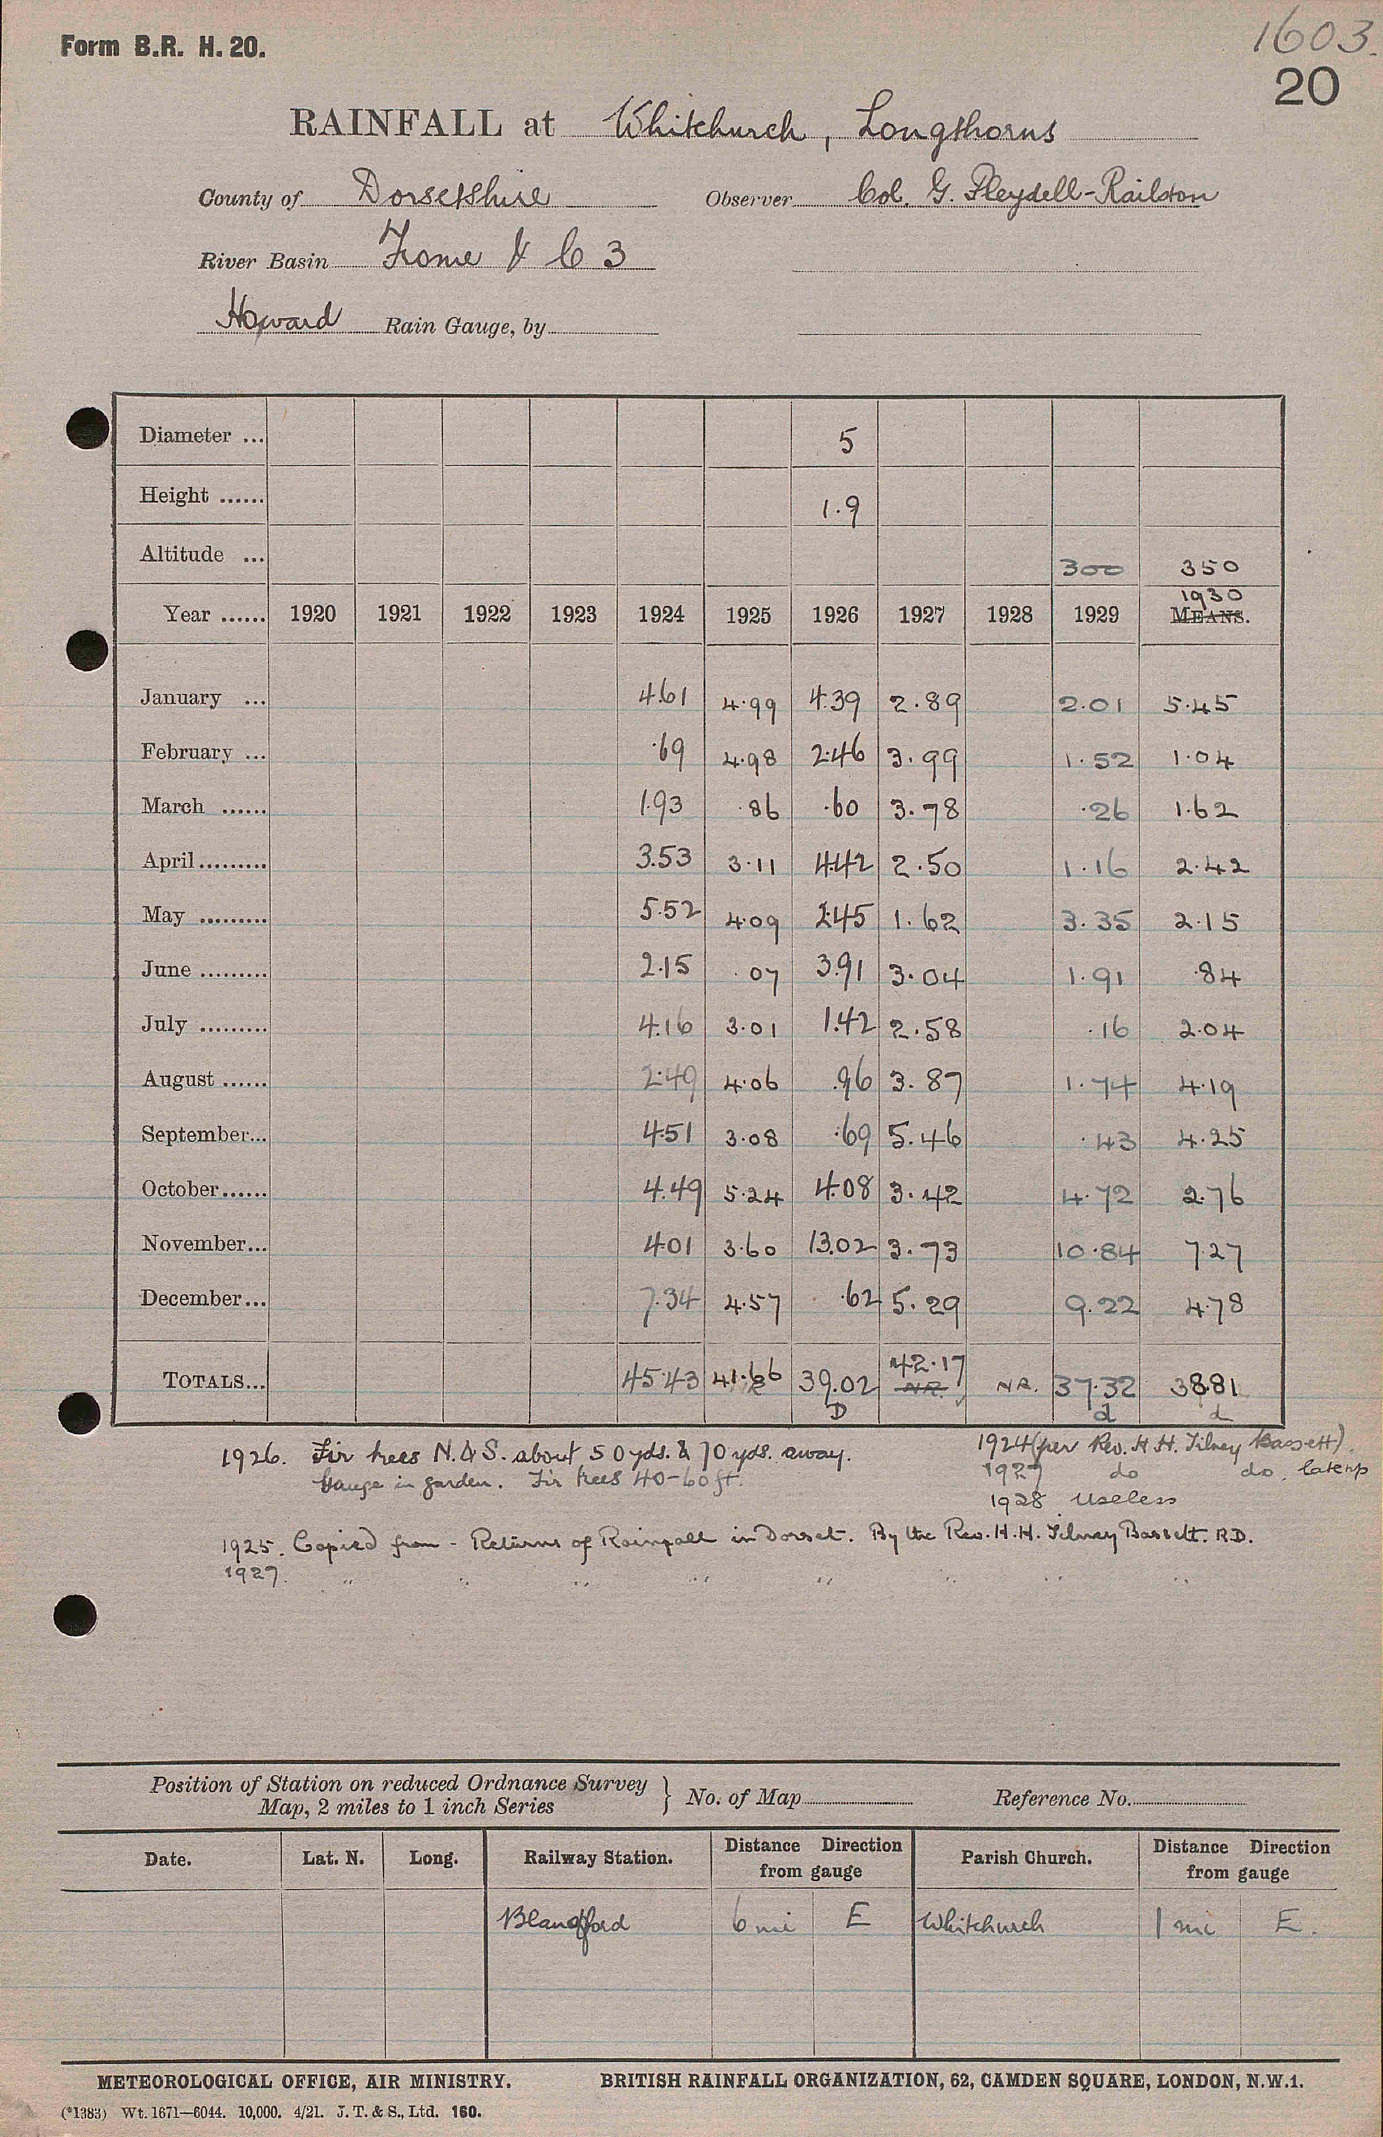 Form B.R. H. 20.
1603.
20
RAINFALL at Whitchurch, Longthorns
County of Dorsetshire Observer Col. G. Pleydell-Railston
River Basin Frome & C 3
Howard Rain Gauge, by
Diameter ... 5
Height ...... 1.9
Altitude ... 300 350
1930
Year ...... 1920 1921 1922 1923 1924 1925 1926 1927 1928 1929 MEANS.
January ... 4.61 4.99 4.39 2.89 2.01 5.45
February ... .69 4.98 2.46 3.99 1.52 1.04
March ...... 1.93 .86 .60 3.78 .26 1.62
April ......... 3.53 3.11 4.42 2.50 1.16 2.42
May ......... 5.52 4.09 2.45 1.62 3.35 2.15
June ......... 2.15 .07 3.91 3.04 1.91 .84
July ......... 4.16 3.01 1.42 2.58 .16 2.04
August ...... 2.49 4.06 .96 3.87 1.74 4.19
September... 4.51 3.08 .69 5.46 .43 4.25
October...... 4.49 5.24 4.08 3.42 4.72 2.76
November... 4.01 3.60 13.02 3.73 10.84 7.27
December... 7.34 4.57 .62 5.29 9.22 4.78
42.17
TOTALS... 45.43 41.66 39.02 NR. NR. 37.32 38.81
D d d
1926. Fir trees N. & S. about 50 yds. & 70 yds. away.
Gauge in garden. Fir trees 40-60 ft.
1924 (per Rev. H. H. Tilney Bassett).
1927 do do.
1928 Useless
1925. Copied from - Returns of Rainfall in Dorset. By the Rev. H. H. Tilney Bassett. R.D.
1927. " " " " " " " "
Position of Station on reduced Ordnance Survey
Map, 2 miles to 1 inch Series } No. of Map Reference No.
Date. Lat. N. Long. Railway Station. Distance Direction from gauge Parish Church. Distance Direction from gauge
Blandford 6 mi E Whitchurch 1 mi E.
METEOROLOGICAL OFFICE, AIR MINISTRY. BRITISH RAINFALL ORGANIZATION, 62, CAMDEN SQUARE, LONDON, N.W.1.
(*1383) Wt. 1671—6044. 10,000. 4/21. J. T. & S., Ltd. 160.